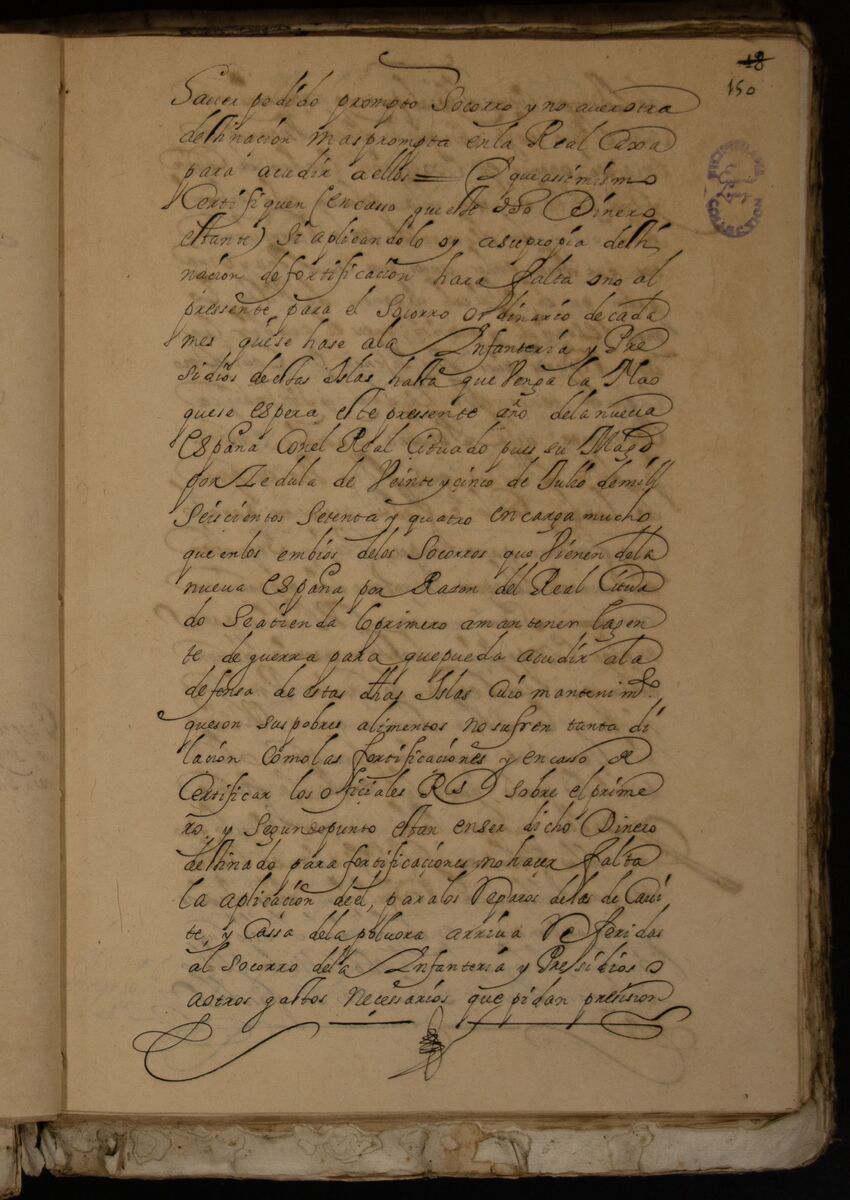 18
150
hauer pedido prompto Socorro y no auer otra
destinacion mas prompta en la Real Caxa
para acudir a ellos = Y que assimismo
Certifiquen (en casso que este dho Dinero
estante) si aplicandolo oy a su propia desti
nacion de fortificacion hara falta o no al
pressente para el Socorro ordinario de cada
mes que se hase a la Infanteria y Pre
sidios destas Islas hasta que Venga la Nao
que se espera este pressente año de la nueua
España Con el Real Cituado pues su Magd
por Zedula de Veinte y cinco de Julio de mill
Seiscientos Setenta y quatro encarga mucho
que en los embios delos Socorros que Vienen dela
nueua España por Rason del Real Citua
do Se atienda lo primero a mantener la gen
te de guerra para que pueda acudir ala
defensa de estas dhas Islas Cuio mantenimto
que son sus pobres alimentos no sufren tanta di
lacion como las fortificaciones y en caso de
Certificar los oficiales Rs sobre el prime
ro, y Segundo punto estar en ser dicho Dinero
destinado para fortificaciones no hacer falta
la aplicacion del, para los Reparos delas de Caui
te, y Cassa dela poluora arriua Referidas
al Socorro dela Infanteria y Presidios o
a otros gastos Necessarios que pidan presision